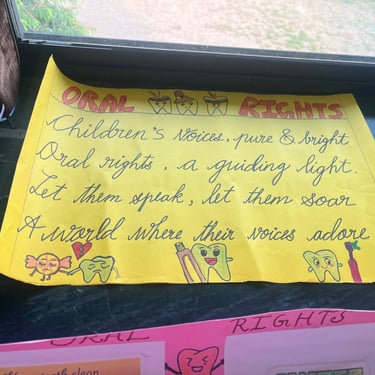 ORAL RIGHTS
Children's voices, pure & bright
Oral rights, a guiding light.
Let them speak, let them soar
A world where their voices adore
ORAL RIGHTS
teeth clean